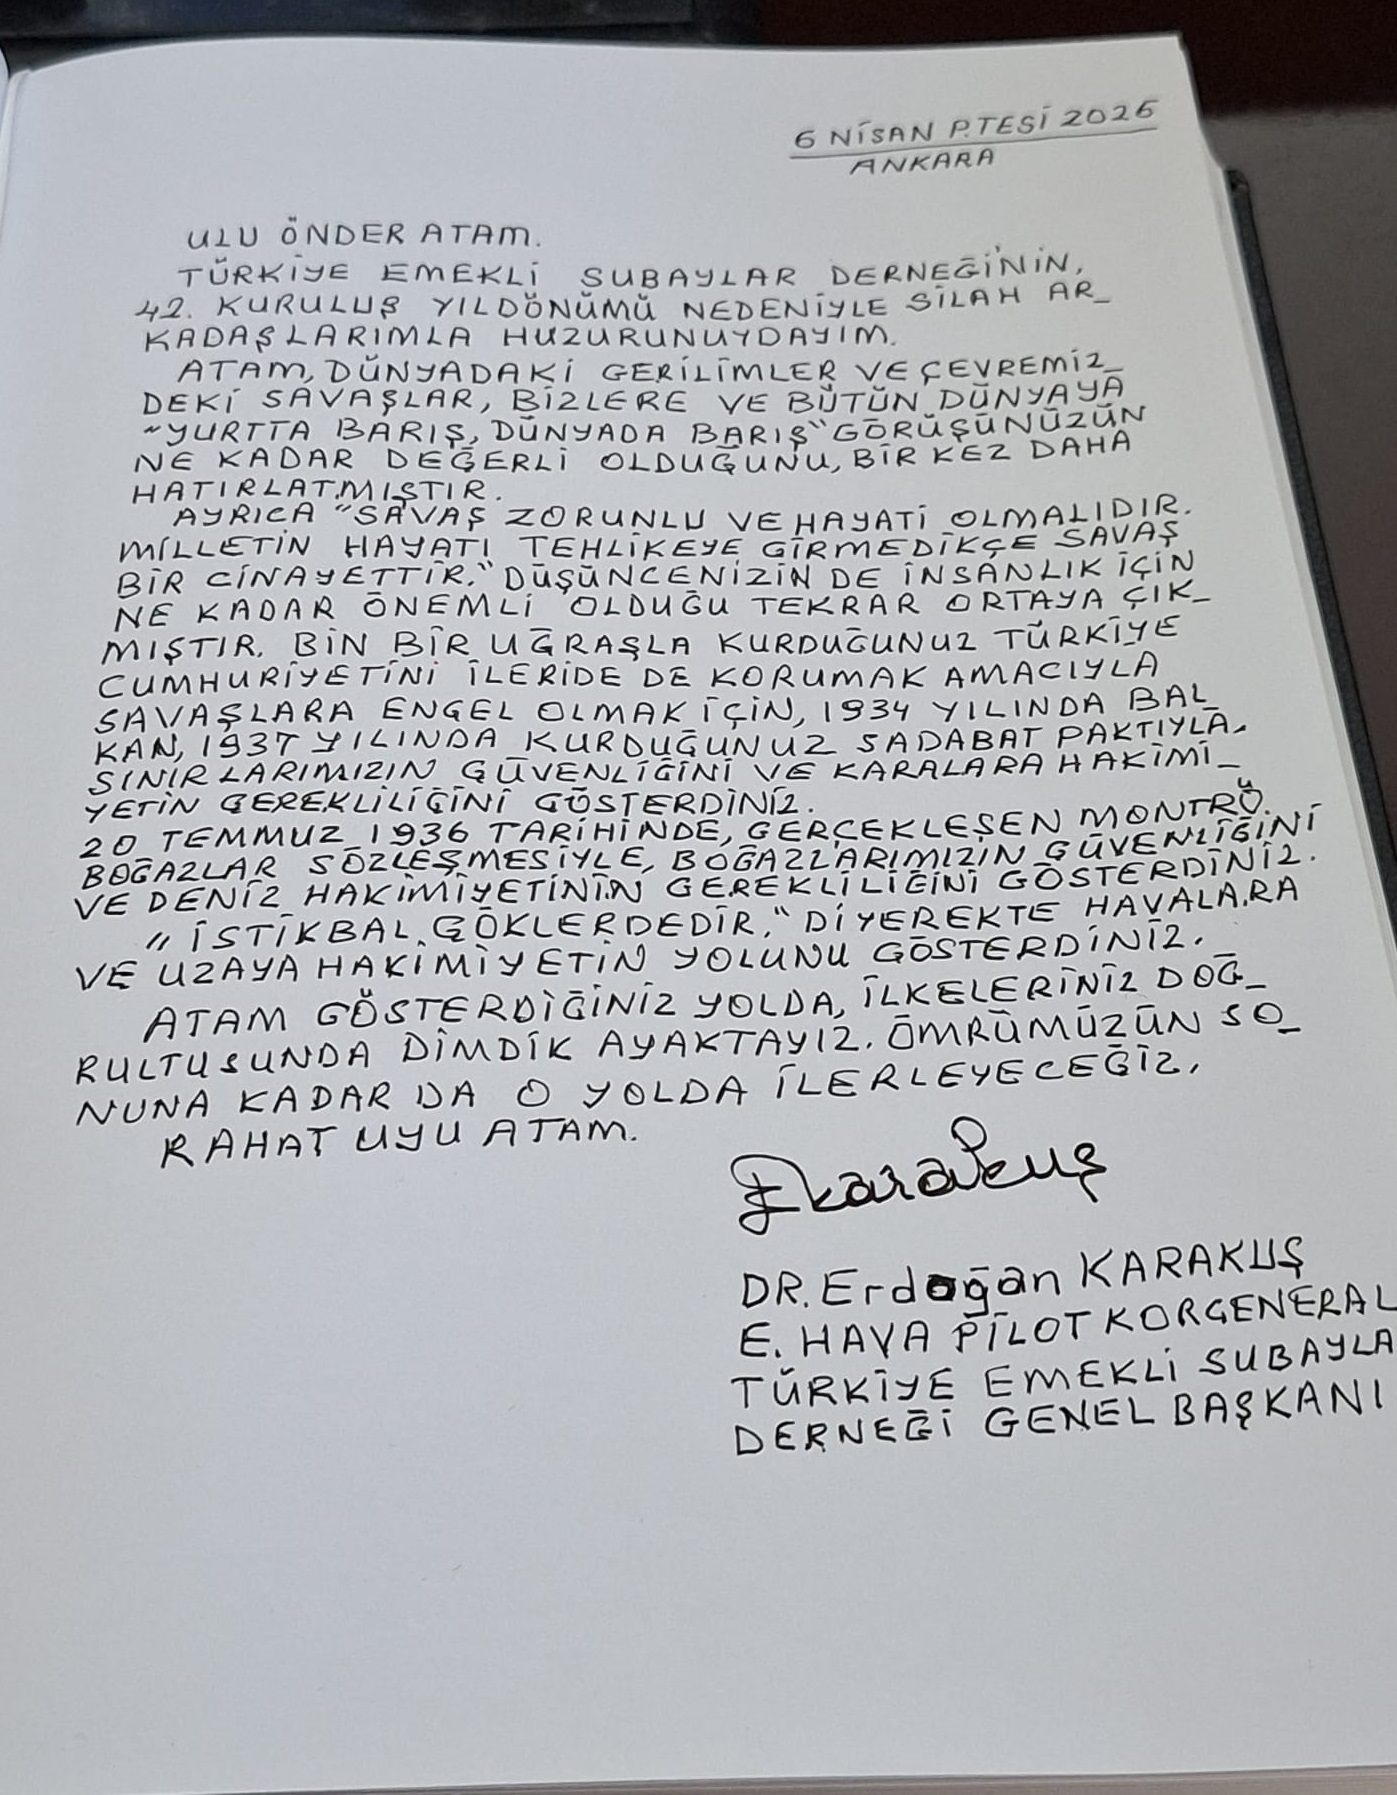 6 NİSAN P.TESİ 2026
ANKARA
ULU ÖNDER ATAM.
TÜRKİYE EMEKLİ SUBAYLAR DERNEĞİ'NİN,
42. KURULUŞ YILDÖNÜMÜ NEDENİYLE SİLAH AR_
KADAŞLARIMLA HUZURUNUYDAYIM.
ATAM, DÜNYADAKİ GERİLİMLER VE ÇEVREMİZ_
DEKİ SAVAŞLAR, BİZLERE VE BÜTÜN DÜNYAYA
"YURTTA BARIŞ, DÜNYADA BARIŞ" GÖRÜŞÜNÜZÜN
NE KADAR DEĞERLİ OLDUĞUNU, BİR KEZ DAHA
HATIRLATMIŞTIR.
AYRICA "SAVAŞ ZORUNLU VE HAYATİ OLMALIDIR.
MİLLETİN HAYATI TEHLİKEYE GİRMEDİKÇE SAVAŞ
BİR CİNAYETTİR." DÜŞÜNCENİZİN DE İNSANLIK İÇİN
NE KADAR ÖNEMLİ OLDUĞU TEKRAR ORTAYA ÇIK_
MIŞTIR. BİN BİR UĞRAŞLA KURDUĞUNUZ TÜRKİYE
CUMHURİYETİNİ İLERİDE DE KORUMAK AMACIYLA
SAVAŞLARA ENGEL OLMAK İÇİN, 1934 YILINDA BAL_
KAN, 1937 YILINDA KURDUĞUNUZ SADABAT PAKTIYLA,
SINIRLARIMIZIN GÜVENLİĞİNİ VE KARALARA HAKİMİ_
YETİN GEREKLİLİĞİNİ GÖSTERDİNİZ.
20 TEMMUZ 1936 TARİHİNDE, GERÇEKLEŞEN MONTRÖ
BOĞAZLAR SÖZLEŞMESİYLE, BOĞAZLARIMIZIN GÜVENLİĞİNİ
VE DENİZ HAKİMİYETİNİN GEREKLİLİĞİNİ GÖSTERDİNİZ.
"İSTİKBAL GÖKLERDEDİR." DİYEREKTE HAVALARA
VE UZAYA HAKİMİYETİN YOLUNU GÖSTERDİNİZ.
ATAM GÖSTERDİĞİNİZ YOLDA, İLKELERİNİZ DOĞ_
RULTUSUNDA DİMDİK AYAKTAYIZ. ÖMRÜMÜZÜN SO_
NUNA KADAR DA O YOLDA İLERLEYECEĞİZ.
RAHAT UYU ATAM.
EKarakuş
DR. Erdoğan KARAKUŞ
E. HAVA PİLOT KORGENERAL
TÜRKİYE EMEKLİ SUBAYLA
DERNEĞİ GENEL BAŞKANI